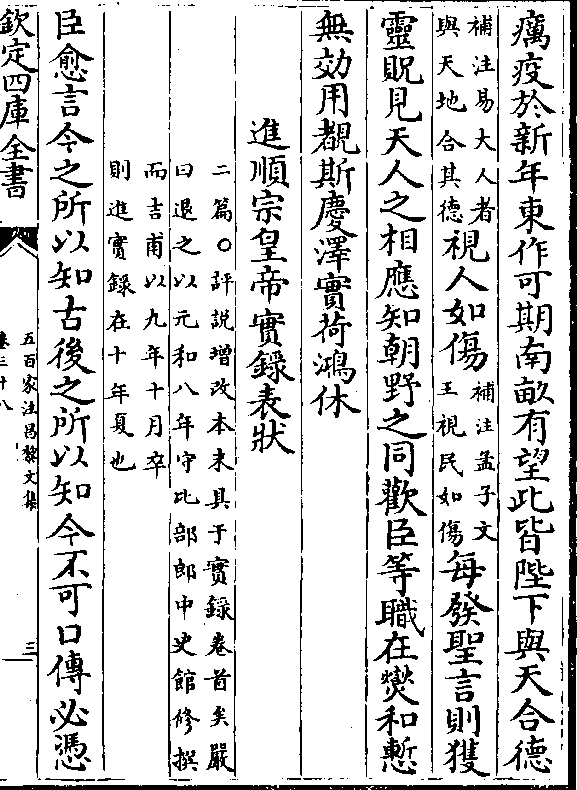 癘疫於新年東作可期南畝有望此皆陛下與天合德
補注易大人者
與天地合其德
視人如傷
補注孟子文
王視民如傷
每發聖言則獲
靈貺見天人之相應知朝野之同歡臣等職在爕和慙
無効用覩斯慶澤實荷鴻休
進順宗皇帝實錄表狀
二篇○評説增改本末具于實錄卷首矣嚴
曰退之以元和八年守比部郎中史館修撰
而吉甫以九年十月卒
則進實錄在十年夏也
臣愈言今之所以知古後之所以知今不可口傳必憑
欽定四庫全書
五百家注昌黎文集
卷三十八
三